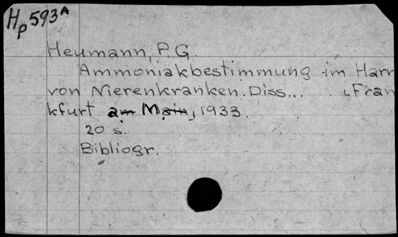 Hp593A
Heumann, P.G.
Ammoniakbestimmung im Harn
von Nierenkranken. Diss... Fran
kfurt am Main, 1933.
20 s.
Bibliogr.